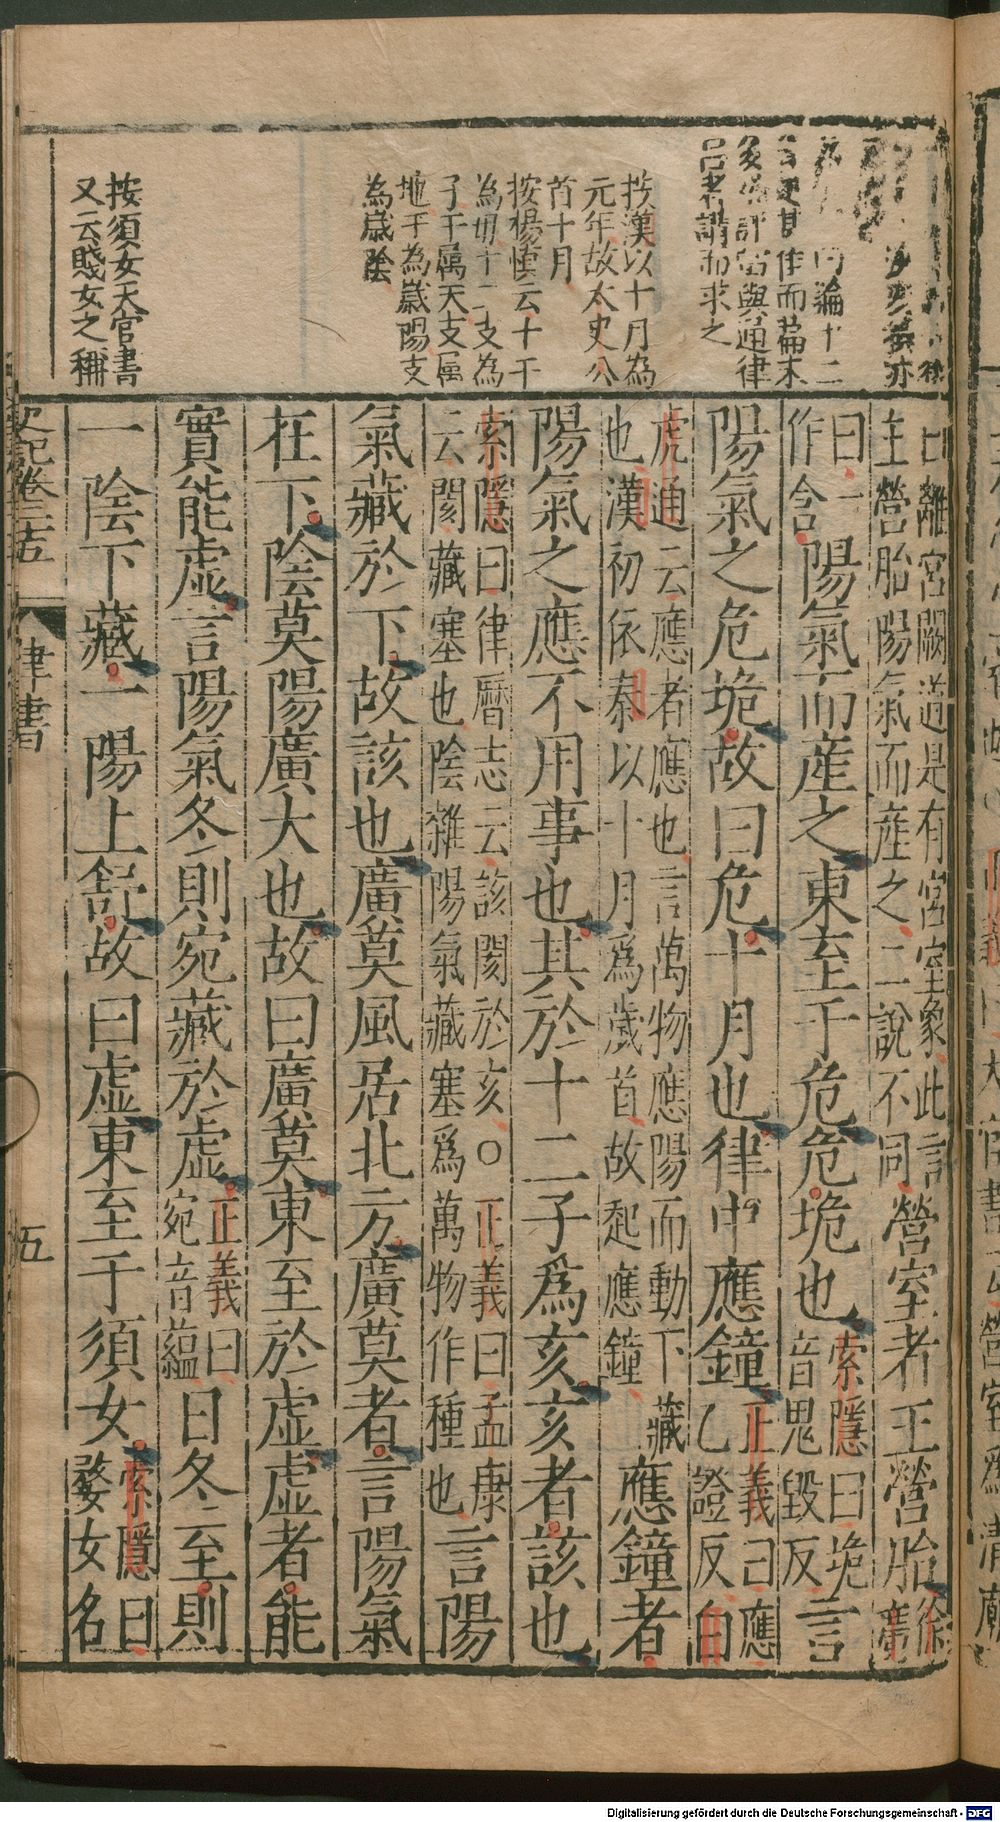 内論十二
律書其作而篇末
多
評當與通律
呂者講而求之
按漢以十月為
元年故太史公
首十月
按楊慎云十干
為母十二支為
子干屬天支屬
地干為歲陽支
為歲陰
按須女天官書
又云賤女之稱
曰離宮闕道是有宮室象此言
主營胎陽氣而産之二說不同
營室者王營胎
徐
廣
曰一
作含
陽氣而産之東至于危危垝也
索隱曰垝
音思毀反
言
陽氣之危垝故曰危十月也律中應鐘
正義曰應
乙證反白
虎通云應者應也言萬物應陽而動下藏
也漢初依秦以十月爲歲首故起應鐘
應鐘者
陽氣之應不用事也其於十二子爲亥亥者該也
索隱曰律曆志云該閡於亥○正義曰孟康
云閡藏塞也陰雜陽氣藏塞爲萬物作種也
言陽
氣藏於下故該也廣莫風居北方廣莫者言陽氣
在下陰莫陽廣大也故曰廣莫東至於虛虛者能
實能虛言陽氣冬則宛藏於虛
正義曰
宛音藴
日冬至則
一陰下藏一陽上舒故曰虛東至于須女
索隱曰
婺女名
史記卷二十五
律書
五
Digitalisierung gefördert durch die Deutsche Forschungsgemeinschaft - DFG